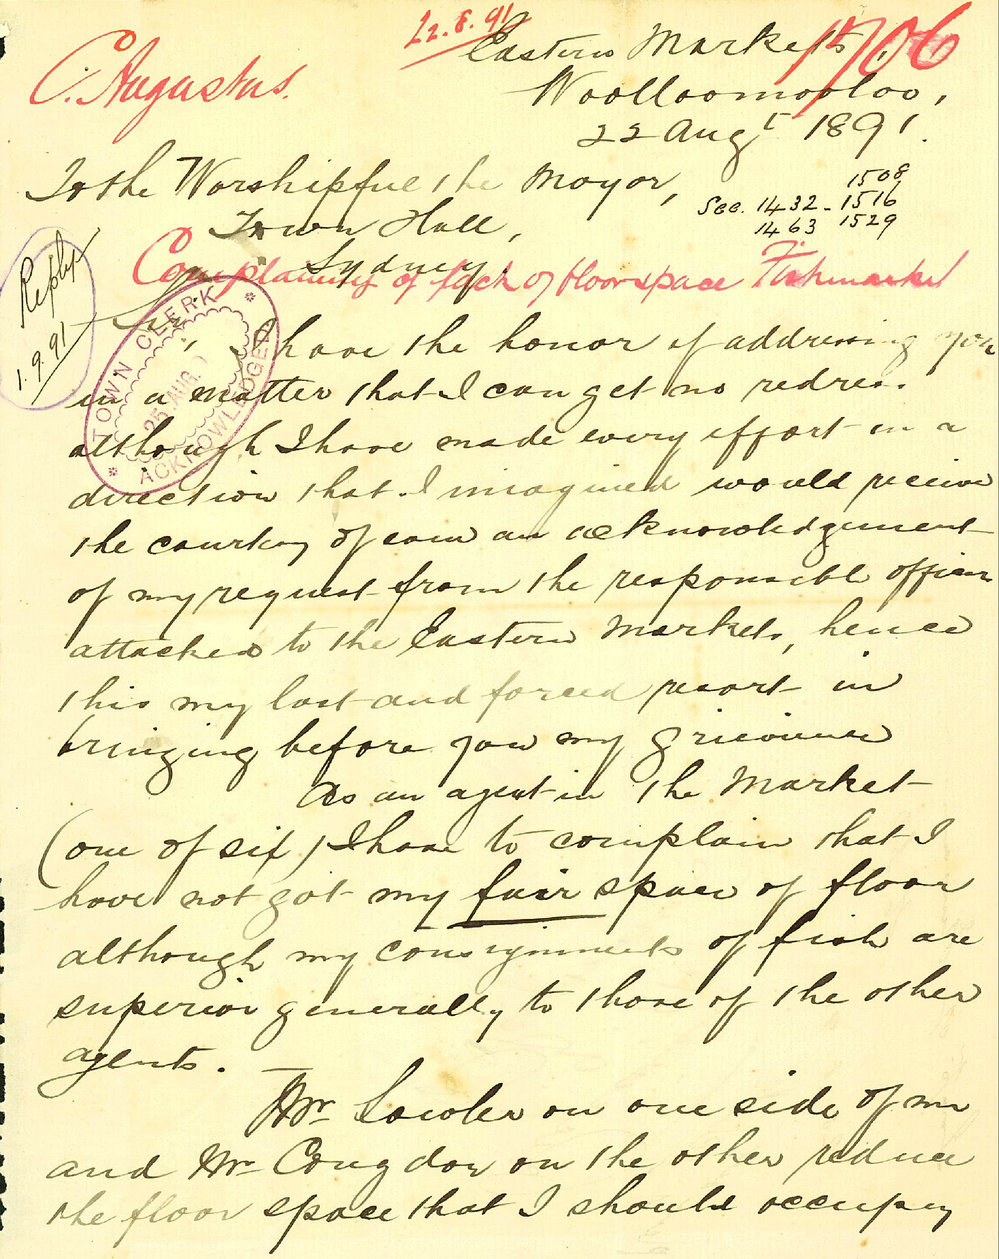 22.8.91
1706
C. Augustus.
Eastern Markets.
Woolloomooloo,
22 Augt 1891.
To the Worshipful the Mayor,
Town Hall,
Sydney.
1508
See. 1432 - 1516
1463 1529
Complaining of lack of floor space Fishmarket
Reply
1.9.91
TOWN CLERK
25 AUG.
ACKNOWLEDGED
Sir
I have the honor of addressing you
in a matter that I can get no redress.
although I have made every effort in a
direction that I imagined would receive
the courtesy of even an acknowledgement
of my request from the responsible officer
attached to the Eastern Markets, hence
this my last and forced resort in
bringing before you my grievance
As an agent in the Market
(one of six) I have to complain that I
have not got my fair space of floor
although my consignments of fish are
superior generally to those of the other
agents.
Mr Lawler on one side of me
and Mr Congdon on the other reduce
the floor space that I should occupy